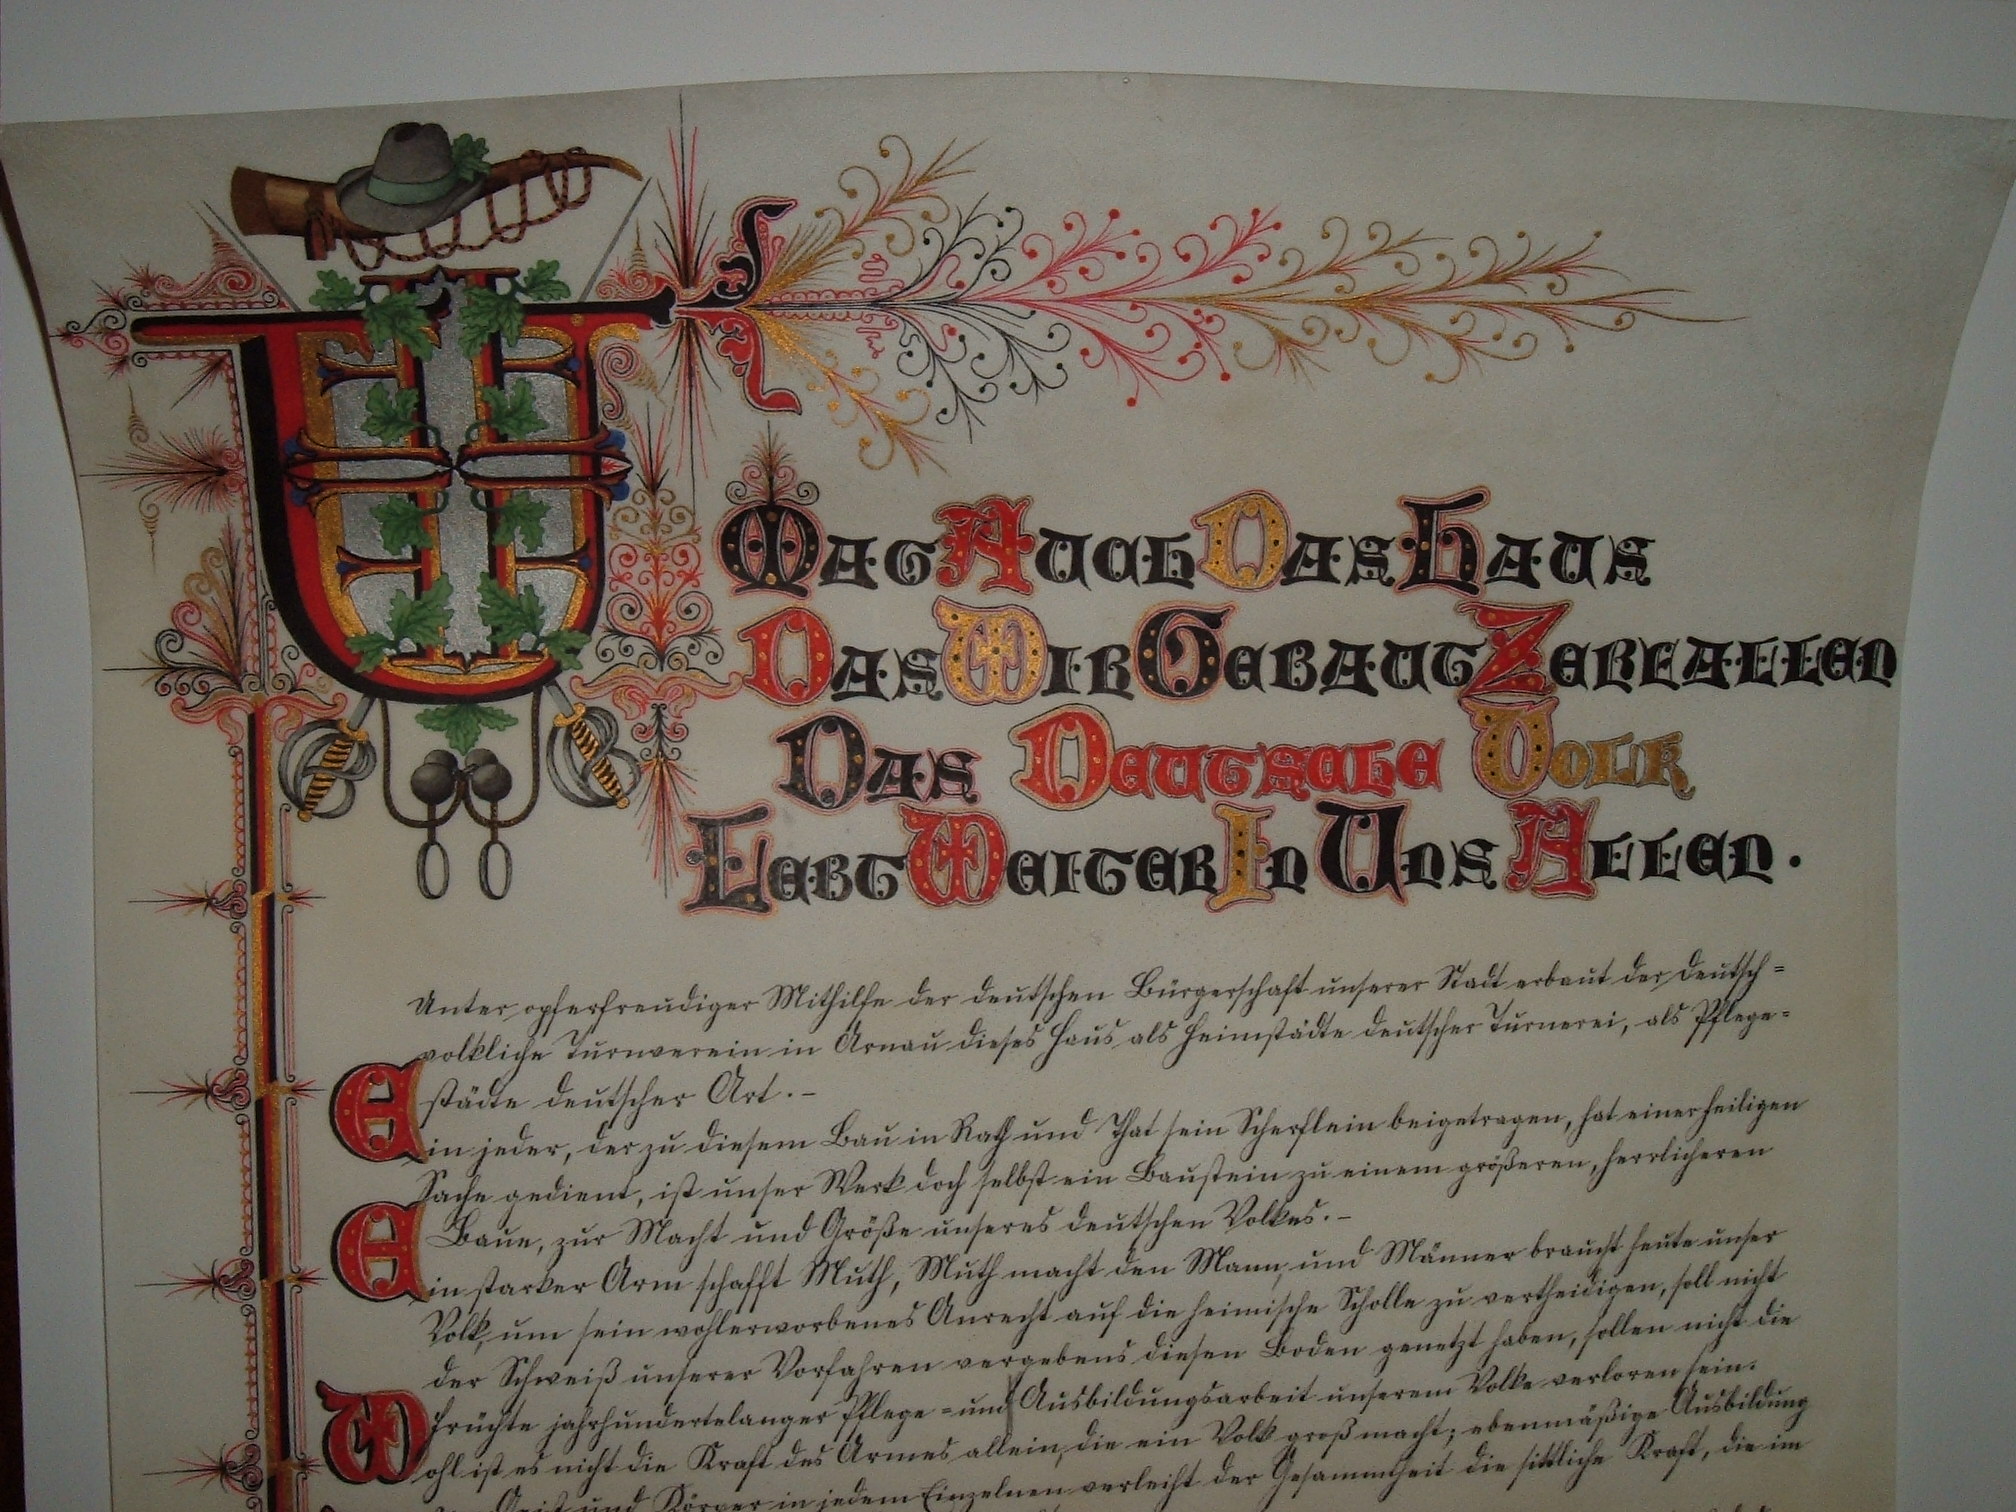 Mag Auch Das Haus
Das Wir Gebaut Zerfallen
Das Deutsche Volk
Lebt Weiter In Uns Allen.
Unter opferfreudiger Mithilfe der deutschen Bürgerschaft unserer Stadt erbaut der deutsch=
volkliche Turnverein in Arnau dieses Haus als Heimstädte deutscher Turnerei, als Pflege=
städte deutscher Art.–
Ein jeder, der zu diesem Bau in Rath und That sein Scherflein beigetragen, hat einer heiligen
Sache gedient, ist unser Werk doch selbst ein Baustein zu einem größeren, herrlicheren
Baue, zur Macht und Größe unseres deutschen Volkes.–
Ein starker Arm schafft Muth, Muth macht den Mann, und Männer braucht heute unser
Volk, um sein wohlerworbenes Anrecht auf die heimische Scholle zu vertheidigen, soll nicht
der Schweiß unserer Vorfahren vergebens diesen Boden genetzt haben, sollen nicht die
Früchte jahrhundertelanger Pflege= und Ausbildungsarbeit unserem Volke verloren sein.
Wohl ist es nicht die Kraft des Armes allein, die ein Volk groß macht; ebenmäßige Ausbildung
Geist und Körper in jedem Einzelnen verleiht der Gesammtheit die sittliche Kraft, die im